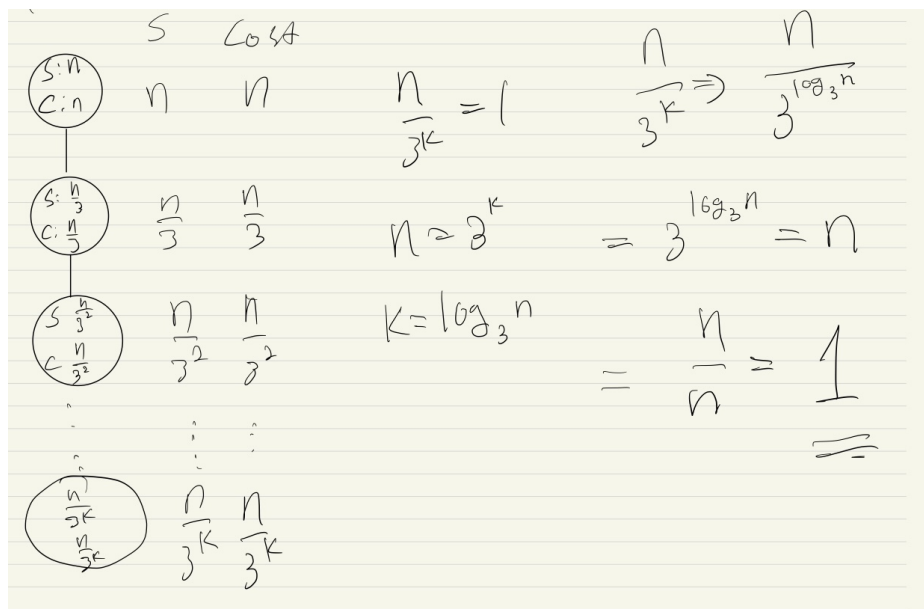 S Cost
S: n
C: n
n n
S: n/3
C: n/3
n/3 n/3
S n/3²
C n/3²
n/3² n/3²
⋮ ⋮ ⋮
n/3^K
n/3^K
n/3^K n/3^K
n/3^K = 1
n = 3^K
K = log₃ n
n/3^K ⇒ n/3^(log₃ n)
= 3^(log₃ n) = n
= n/n = 1